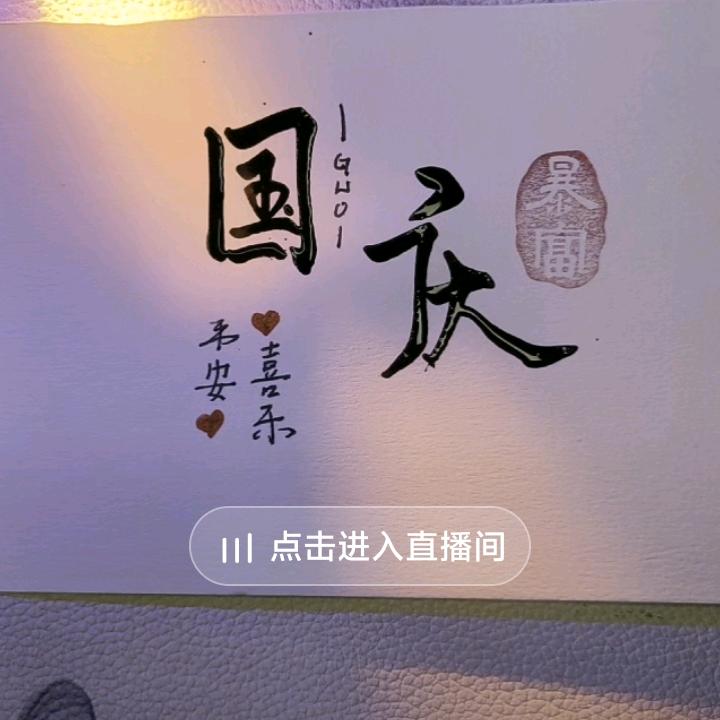 国庆
暴富
喜乐
平安
点击进入直播间